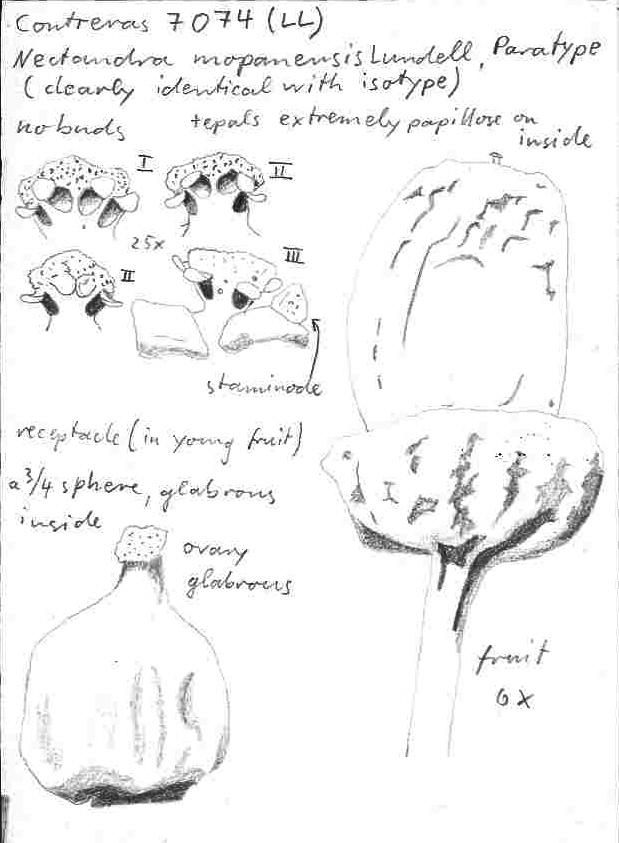 Contreras 7074 (LL)
Nectandra mopanensis Lundell, Paratype
(clearly identical with isotype)
no buds
tepals extremely papillose on
inside
I
II
25x
II
III
staminode
receptacle (in young fruit)
a 3/4 sphere, glabrous
inside
ovary
glabrous
fruit
6x